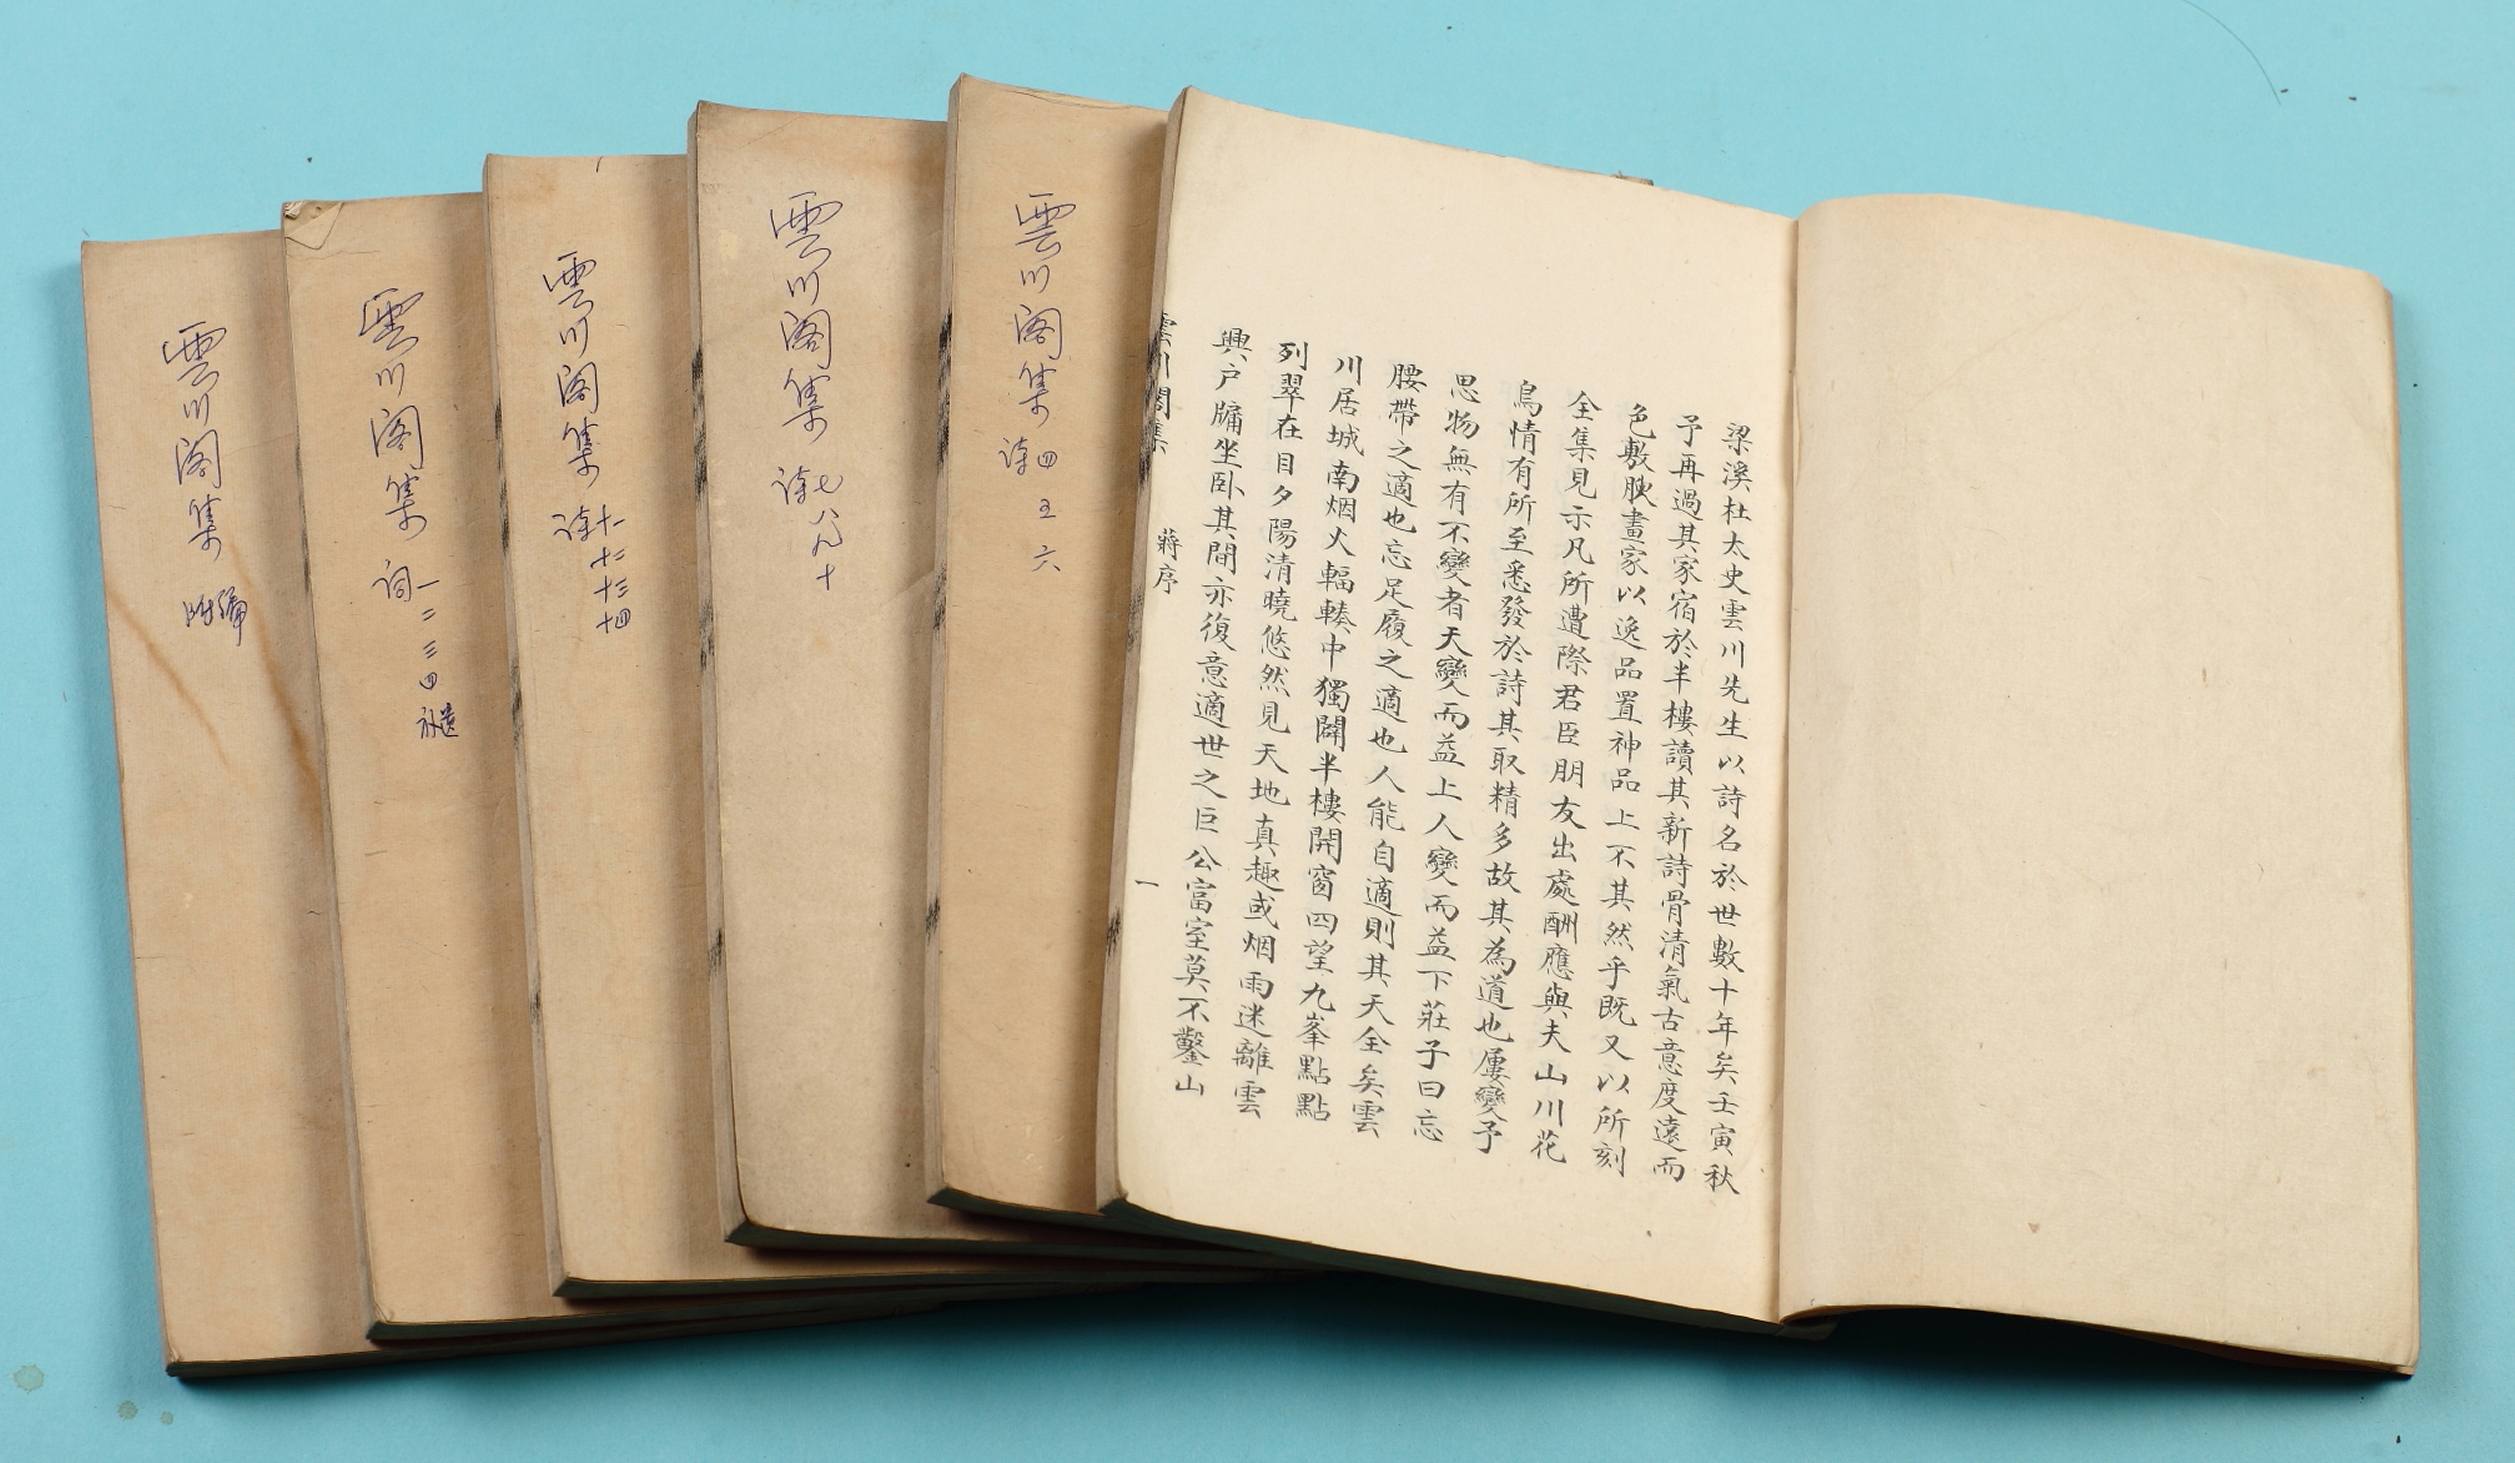 梁溪杜太史雲川先生以詩名於世數十年矣壬寅秋
予再過其家宿於半樓讀其新詩骨清氣古意度遠而
色敷腴畫家以逸品置神品上不其然乎既又以所刻
全集見示凡所遭際君臣朋友出處酬應與夫山川花
鳥情有所至悉發於詩其取精多故其為道也屢變予
思物無有不變者天變而益上人變而益下莊子曰忘
腰帶之適也忘足履之適也人能自適則其天全矣雲
川居城南烟火輻輳中獨闢半樓開窗四望九峯點點
列翠在目夕陽清曉悠然見天地真趣或烟雨迷離雲
興戶牖坐臥其間亦復意適世之巨公富室莫不鑿山
雲川閣集 蔣序 一
雲川閣集 诗四 五 六
雲川閣集 诗七 八 九 十
雲川閣集 诗十一 十二 十三 十四
雲川閣集 词一 二 三 四 补遗
雲川閣集 附编